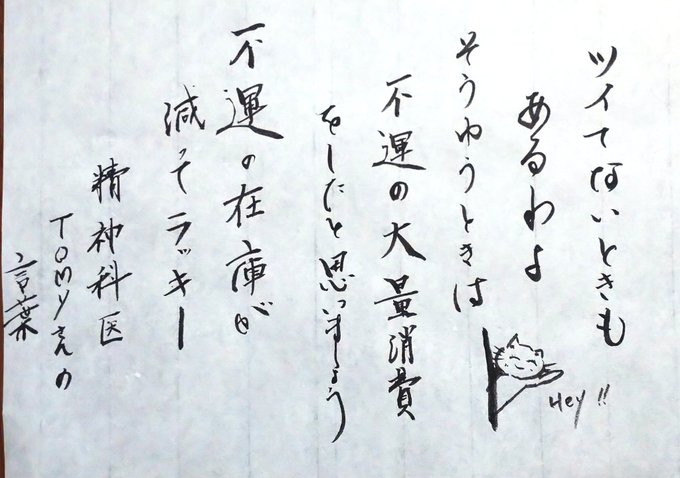 ツイてないときも
あるわよ
そうゆうときは
不運の大量消費
をしたと思いましょう
不運の在庫が
減ってラッキー
精神科医
TOMYさんの
言葉
Hey !!